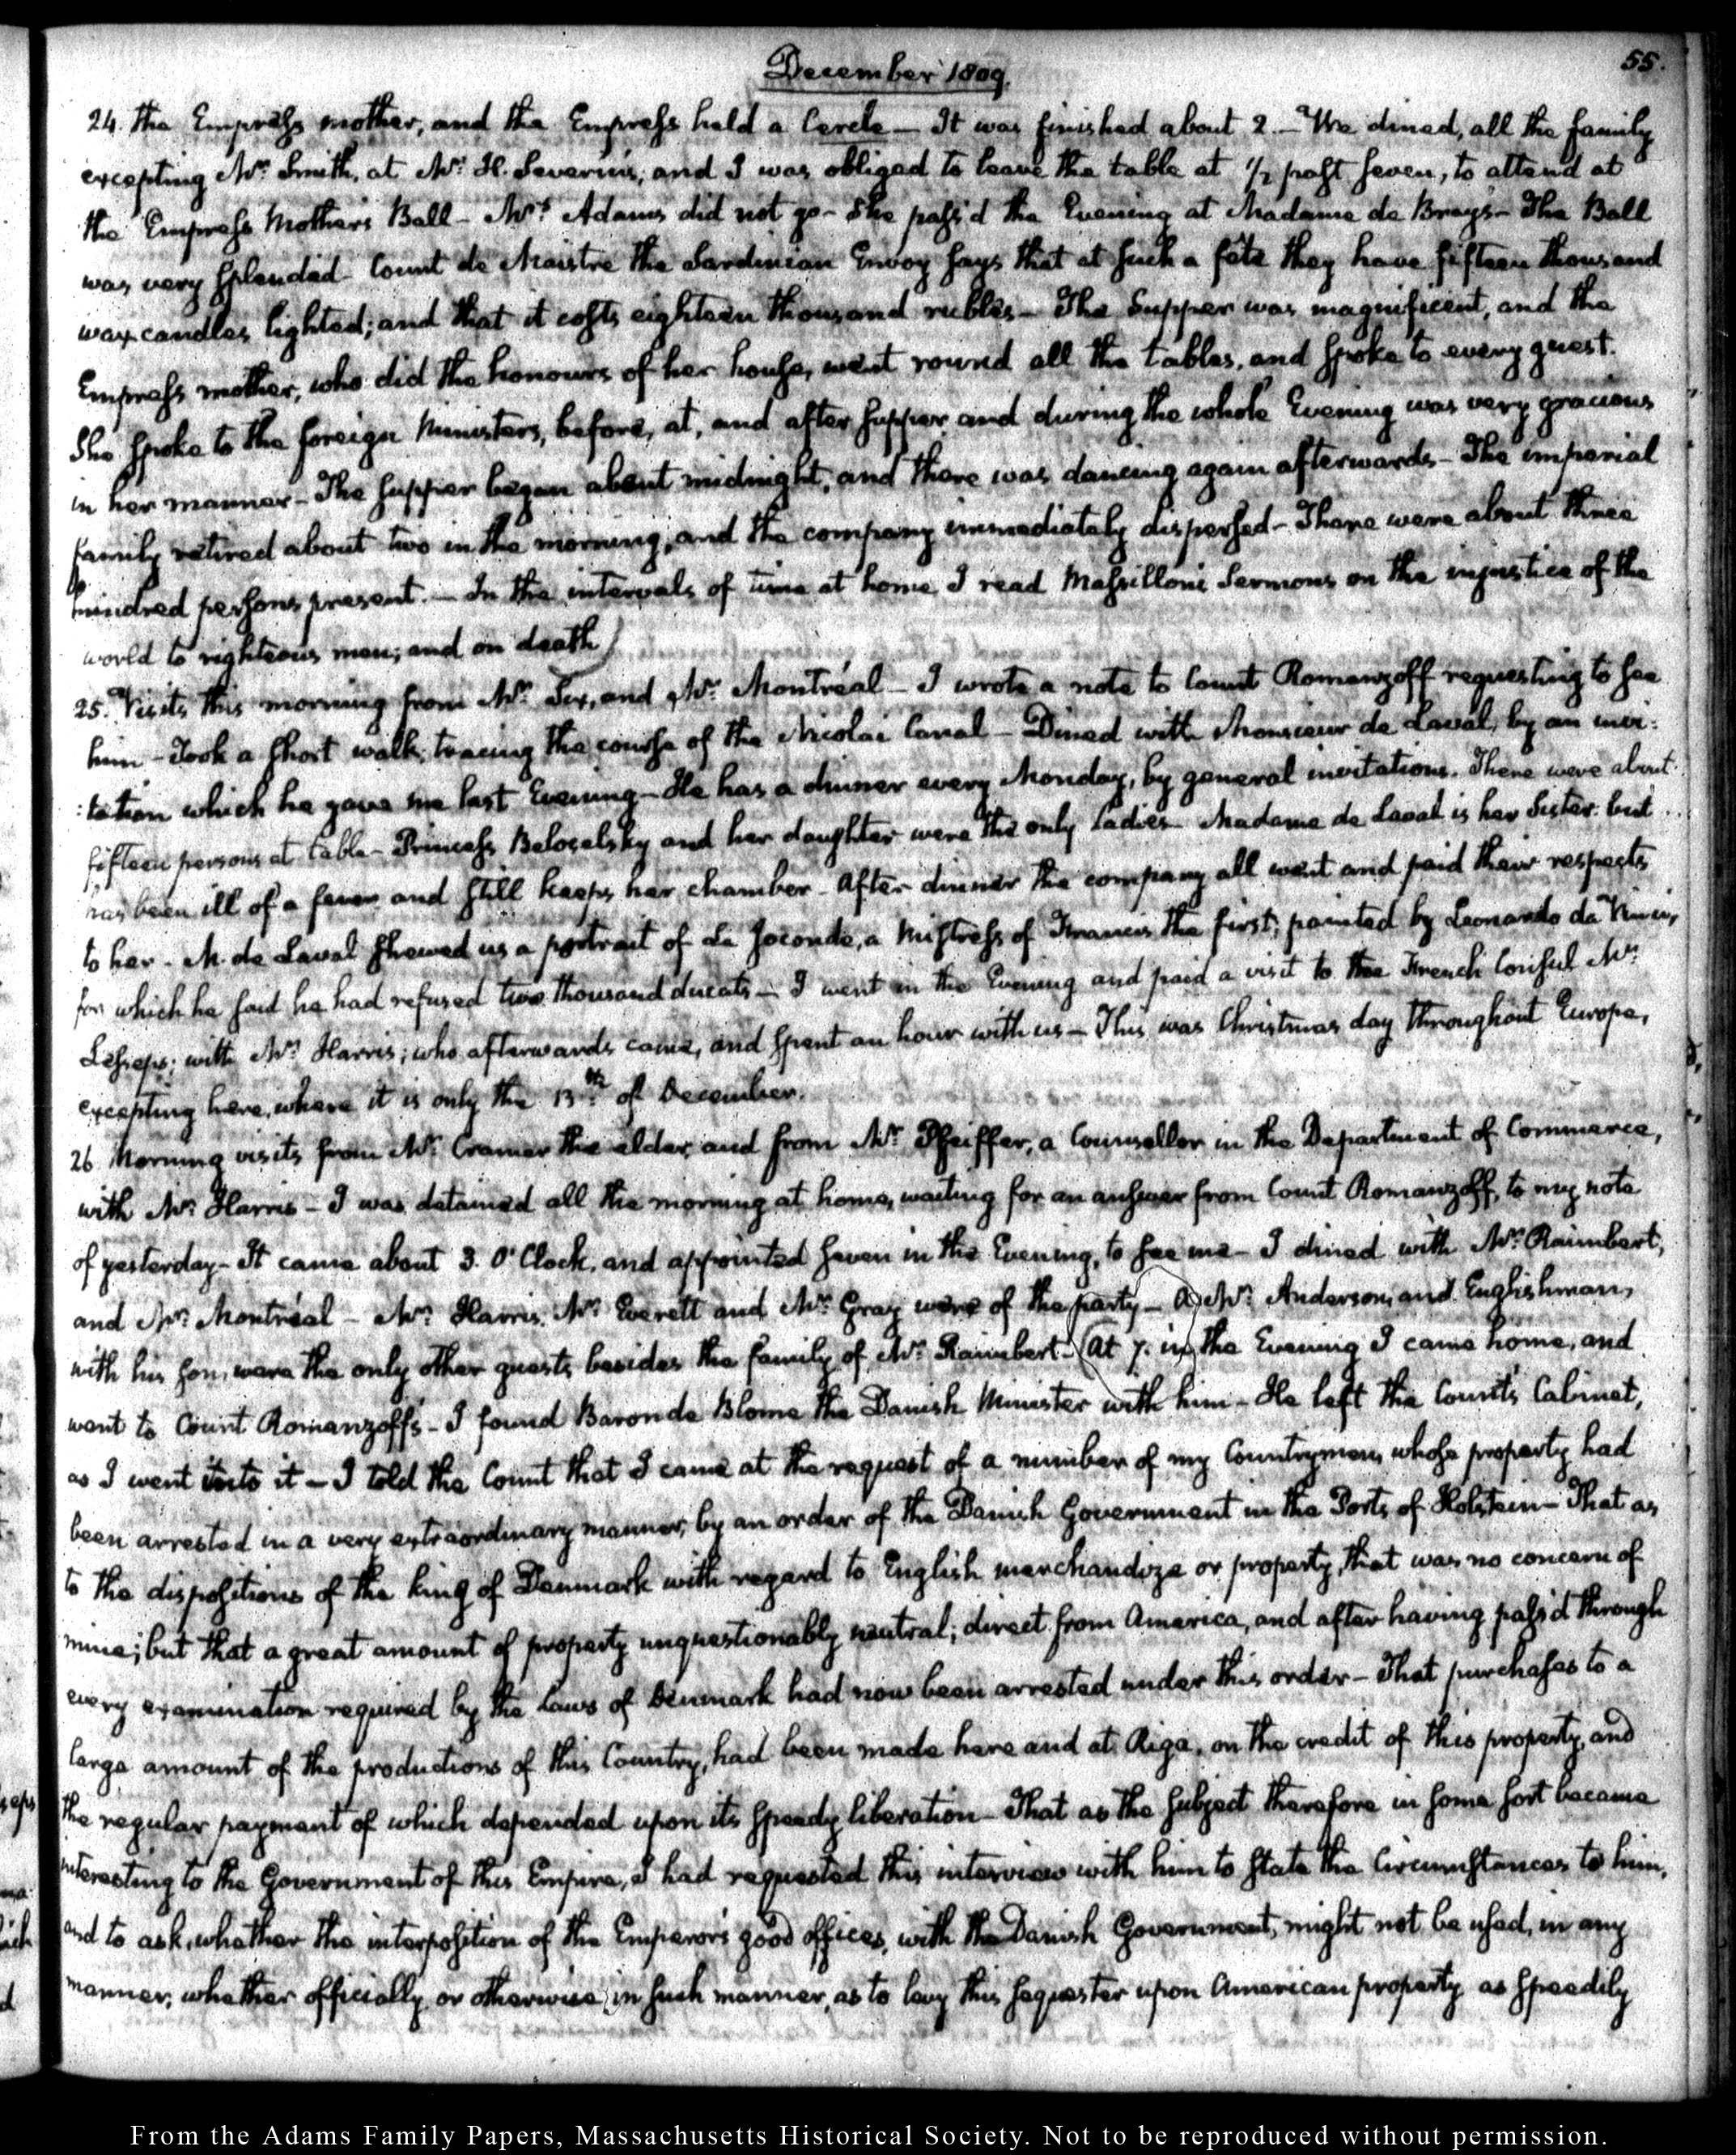 December 1809.
55.
24. The Empress mother, and the Empress held a Cercle — It was finished about 2. — We dined, all the family
excepting Mr. Smith, at Mr. H. Severin's, and I was obliged to leave the table at 1/2 past seven, to attend at
the Empress Mother's Ball — Mrs. Adams did not go — She pass'd the Evening at Madame de Bray's — The Ball
was very splendid — Count de Maistre the Sardinian Envoy says that at such a fête they have fifteen thousand
wax candles lighted; and that it costs eighteen thousand rubles — The Supper was magnificent, and the
Empress mother, who did the honours of her house, went round all the tables, and spoke to every guest.
She spoke to the foreign Ministers, before, at, and after supper and during the whole Evening was very gracious
in her manner — The supper began about midnight, and there was dancing again afterwards — The imperial
family retired about two in the morning, and the company immediately dispersed — There were about three
hundred persons present. — In the intervals of time at home I read Massillon's Sermons on the injustice of the
world to righteous men; and on death
25. Visits this morning from Mr. Six, and Mr. Montréal — I wrote a note to Count Romanzoff requesting to see
him — Took a short walk, tracing the course of the Nicolai Canal — Dined with Monsieur de Laval, by an invi:
:tation which he gave me last Evening — He has a dinner every Monday, by general invitations. There were about
fifteen persons at table — Princess Beloselsky and her daughter were the only Ladies — Madame de Laval is her Sister but
has been ill of a fever and still keeps her chamber — After dinner the company all went and paid their respects
to her — M. de Laval shewed us a portrait of La Joconde, a Mistress of Francis the first, painted by Leonardo da Vinci,
for which he said he had refused two thousand ducats — I went in the Evening and paid a visit to the French Consul Mr.
Lesseps; with Mr. Harris; who afterwards came, and spent an hour with us — This was Christmas day throughout Europe,
excepting here, where it is only the 13th. of December.
26 Morning visits from Mr. Cramer the elder, and from Mr. Pfeiffer, a Counsellor in the Department of Commerce,
with Mr. Harris — I was detained all the morning at home, waiting for an answer from Count Romanzoff, to my note
of yesterday — It came about 3. O'Clock, and appointed seven in the Evening, to see me — I dined with Mr. Raimbert,
and Mr. Montréal — Mr. Harris, Mr. Everett and Mr. Gray were of the party — A Mr. Anderson, and Englishman,
with his son, were the only other guests besides the family of Mr. Raimbert — At 7. in the Evening I came home, and
went to Count Romanzoff's — I found Baron de Blome the Danish Minister with him — He left the Count's Cabinet,
as I went into it — I told the Count that I came at the request of a number of my Countrymen, whose property had
been arrested in a very extraordinary manner, by an order of the Danish Government in the Ports of Holstein — That as
to the dispositions of the king of Denmark with regard to English merchandize or property, that was no concern of
mine; but that a great amount of property unquestionably neutral; direct from America, and after having pass'd through
every examination required by the Laws of Denmark had now been arrested under this order — That purchases to a
large amount of the productions of this Country, had been made here and at Riga, on the credit of this property, and
the regular payment of which depended upon its speedy liberation — That as the subject therefore in some sort became
interesting to the Government of this Empire, I had requested this interview with him to state the Circumstances to him,
and to ask, whether the interposition of the Emperor's good offices, with the Danish Government, might not be used, in any
manner, whether officially or otherwise, in such manner, as to levy this sequester upon American property as speedily
From the Adams Family Papers, Massachusetts Historical Society. Not to be reproduced without permission.